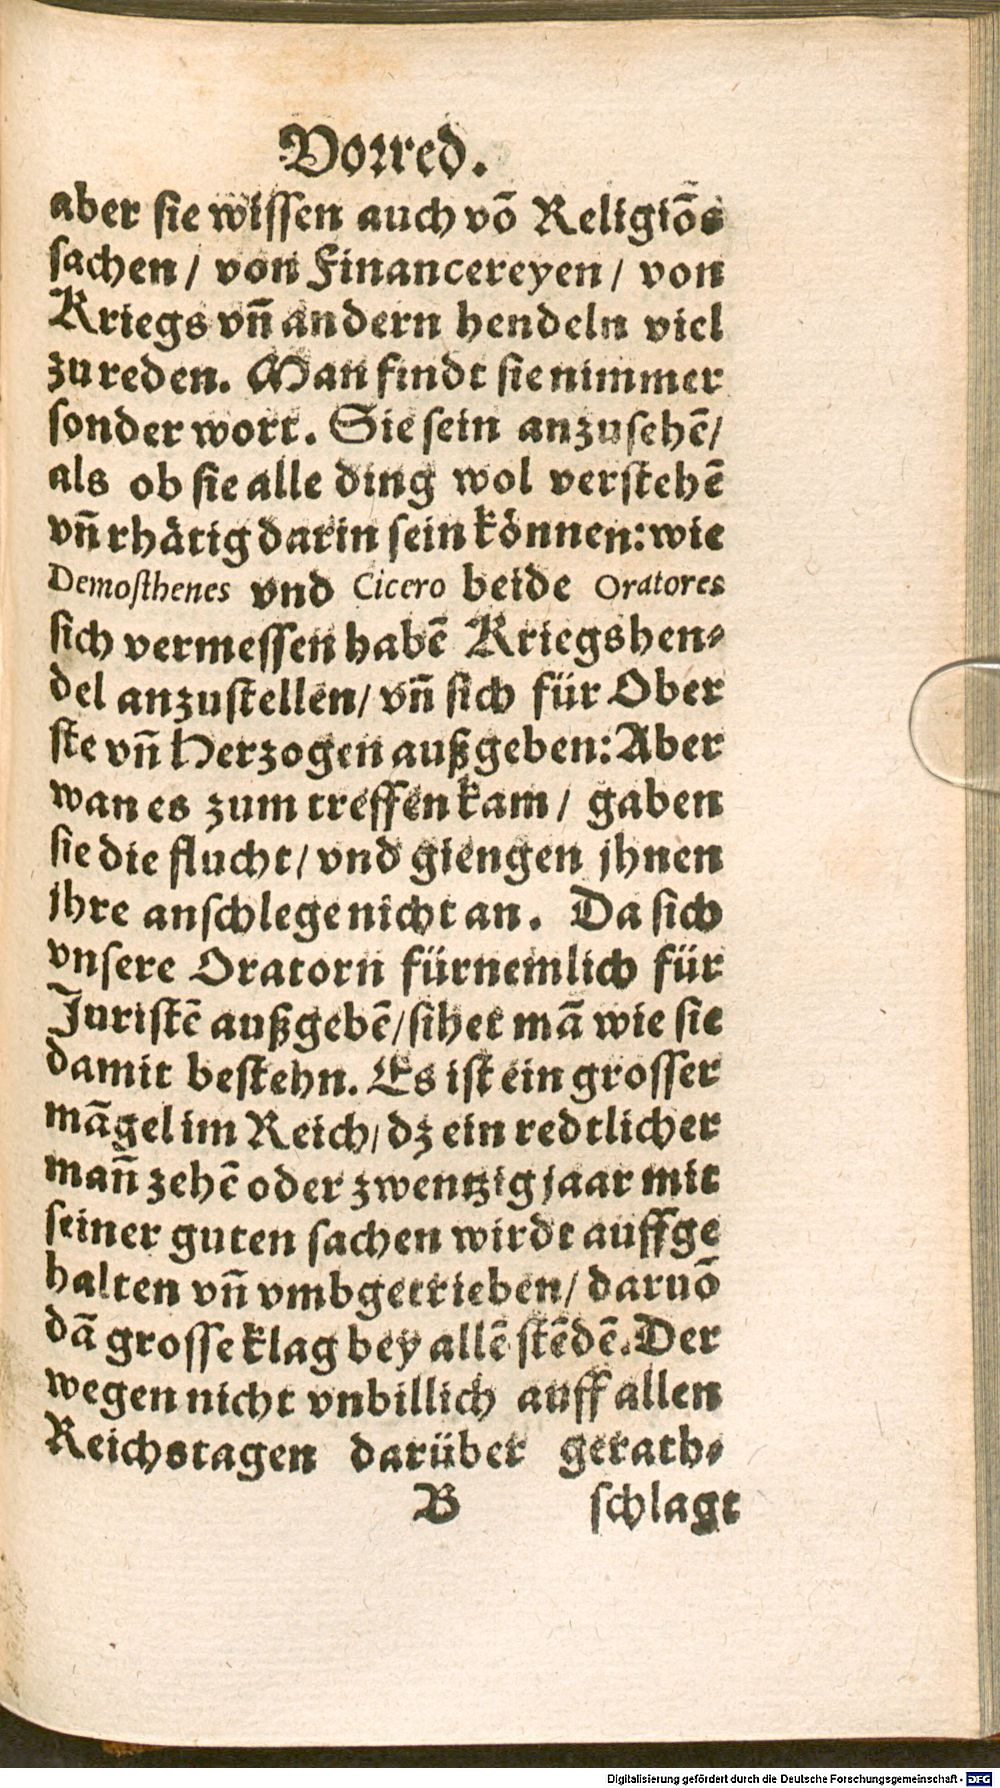 Vorred.
aber sie wissen auch võ Religiõs
sachen / von Financereyen / von
Kriegs vñ andern hendeln viel
zu reden. Man findt sie nimmer
sonder wort. Sie sein anzusehẽ /
als ob sie alle ding wol verstehẽ
vñ rhätig darin sein können: wie
Demosthenes vnd Cicero beide Oratores
sich vermessen habẽ Kriegshen-
del anzustellen / vñ sich für Ober
ste vñ Herzogen außgeben: Aber
wan es zum treffen kam / gaben
sie die flucht / vnd giengen jhnen
jhre anschlege nicht an. Da sich
vnsere Oratorn fürnemlich für
Juristẽ außgebẽ / sihet mã wie sie
damit bestehn. Es ist ein grosser
mãgel im Reich / dz ein redtlicher
mañ zehẽ oder zwentzig jaar mit
seiner guten sachen wirdt auffge
halten vñ vmbgetrieben / daruõ
dã grosse klag bey allẽ stẽdẽ. Der
wegen nicht vnbillich auff allen
Reichstagen darüber gerath-
B schlagt
Digitalisierung gefördert durch die Deutsche Forschungsgemeinschaft - DFG